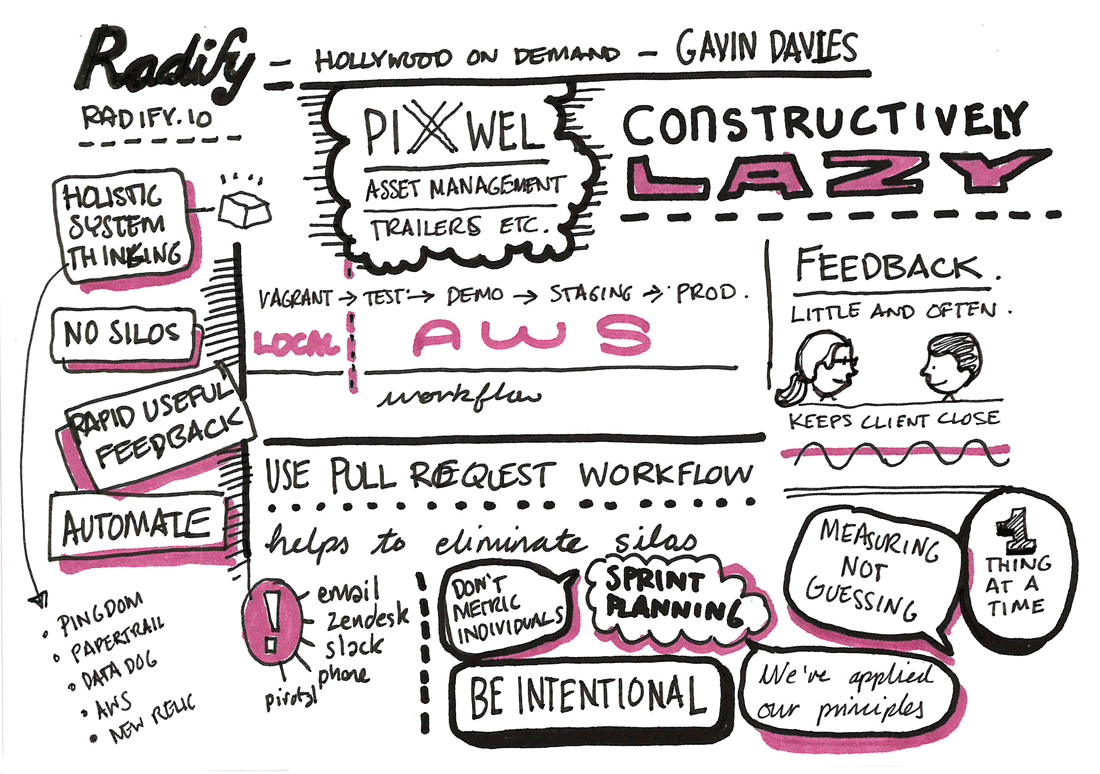 Radify - HOLLYWOOD ON DEMAND - GAVIN DAVIES
RADIFY.IO
PIXWEL
ASSET MANAGEMENT
TRAILERS ETC.
CONSTRUCTIVELY
LAZY
HOLISTIC
SYSTEM
THINKING
NO SILOS
RAPID USEFUL
FEEDBACK
AUTOMATE
• PINGDOM
• PAPERTRAIL
• DATA DOG
• AWS
• NEW RELIC
VAGRANT → TEST → DEMO → STAGING → PROD.
LOCAL
AWS
workflow
FEEDBACK.
LITTLE AND OFTEN.
KEEPS CLIENT CLOSE
USE PULL REQUEST WORKFLOW
helps to eliminate silos
!
email
zendesk
slack
phone
pivotal
DON'T
METRIC
INDIVIDUALS
SPRINT
PLANNING
BE INTENTIONAL
MEASURING
NOT
GUESSING
1
THING
AT A
TIME
We've applied
our principles